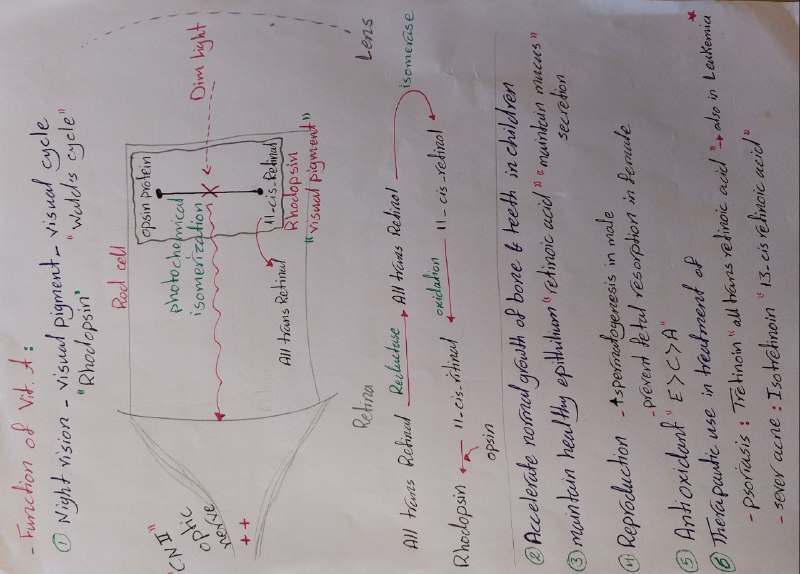 - Function of Vit. A:
① Night vision - visual pigment - visual cycle
"Rhodopsin" "Wald's cycle"
Rod cell
opsin protein
photochemical
isomerization
Dim light
11-cis-Retinal
Rhodopsin
"visual pigment"
All trans Retinal
"CN II"
optic
nerve
++
Retina
Lens
All trans Retinal Reductase All trans Retinol
isomerase
Rhodopsin 11-cis-ritinal oxidation 11-cis-retinol
opsin
② Accelerate normal growth of bone & teeth in children
③ maintain healthy epithilium "retinoic acid" "maintain mucus"
secretion
④ Reproduction - spermatogenesis in male
- prevent fetal resorption in female
⑤ Antioxidant "E>C>A"
⑥ Therapautic use in treatment of
- psoriasis: Tretinoin "all trans retinoic acid" → also in Leukemia *
- sever acne: Isotretinoin "13-cis retinoic acid"